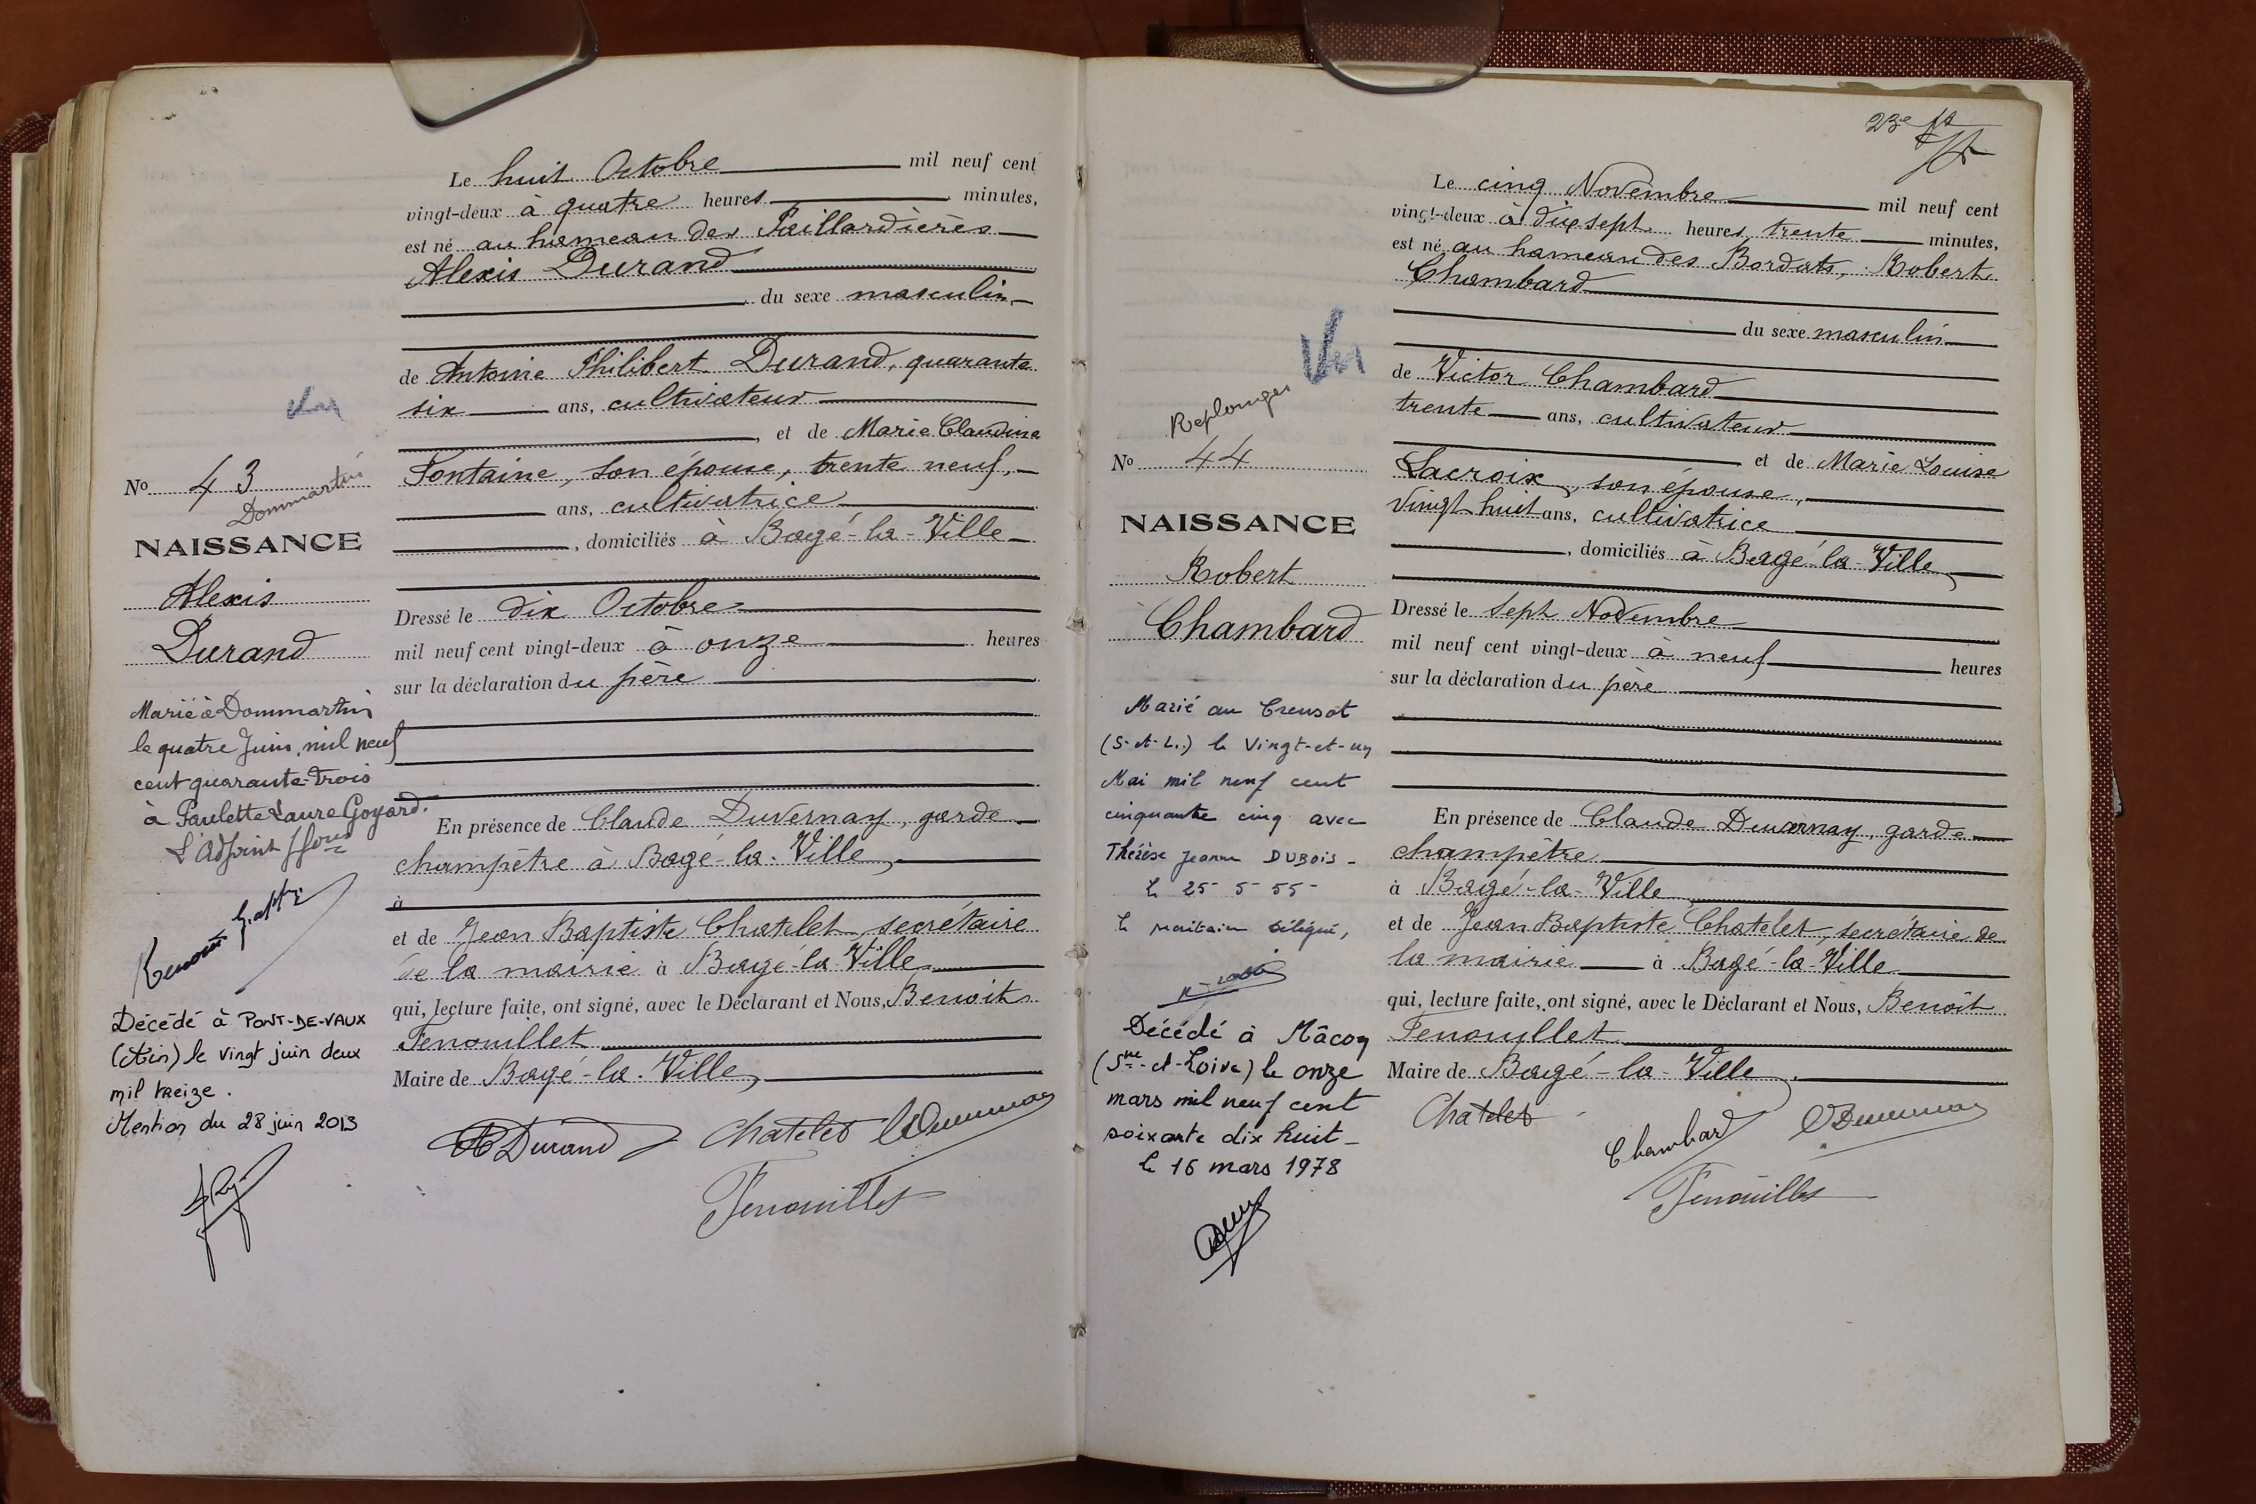 Le huit Octobre mil neuf cent
vingt-deux à quatre heures minutes,
est né au hameau des Paillardières
Alexis Durand
du sexe masculin
de Antoine Philibert Durand, quarante
six ans, cultivateur
, et de Marie Claudine
Fontaine, son épouse, trente neuf,
ans, cultivatrice
, domiciliés à Bagé-la-Ville
Dressé le dix Octobre
mil neuf cent vingt-deux à onze heures
sur la déclaration du père
En présence de Claude Duvernay, garde
champêtre à Bagé-la-Ville,
à
et de Jean Baptiste Chatelet, secrétaire
de la mairie à Bagé-la-Ville
qui, lecture faite, ont signé, avec le Déclarant et Nous, Benoit
Fenouillet
Maire de Bagé-la-Ville,
Durand Chatelet
Fenouillet
Vu
No 43
Dommartin
NAISSANCE
Alexis
Durand
Marié à Dommartin
le quatre Juin, mil neuf
cent quarante-trois
à Paulette Laure Goyard.
L'Adjoint
Décédé à PONT-DE-VAUX
(Ain) le vingt juin deux
mil treize.
Mention du 28 juin 2013
23e
Le cinq Novembre mil neuf cent
vingt-deux à dix sept heures trente minutes,
est né au hameau des Bordats, Robert
Chambard
du sexe masculin
de Victor Chambard
trente ans, cultivateur
et de Marie Louise
Lacroix, son épouse,
vingt huit ans, cultivatrice
, domiciliés à Bagé-la-Ville
Dressé le sept Novembre
mil neuf cent vingt-deux à neuf heures
sur la déclaration du père
En présence de Claude Duvernay, garde
champêtre
à Bagé-la-Ville
et de Jean Baptiste Chatelet, secrétaire de
la mairie à Bagé-la-Ville
qui, lecture faite, ont signé, avec le Déclarant et Nous, Benoit
Fenouillet
Maire de Bagé-la-Ville,
Chatelet
Chambard
Fenouillet
Vu
Replonges
No 44
NAISSANCE
Robert
Chambard
Marié au Creusot
(S-et-L.) le Vingt-et-un
Mai mil neuf cent
cinquante cinq avec
Thérèse Jeanne DUBOIS -
le 25-5-55-
Décédé à Mâcon
(Sne-et-Loire) le onze
mars mil neuf cent
soixante dix huit -
le 16 mars 1978